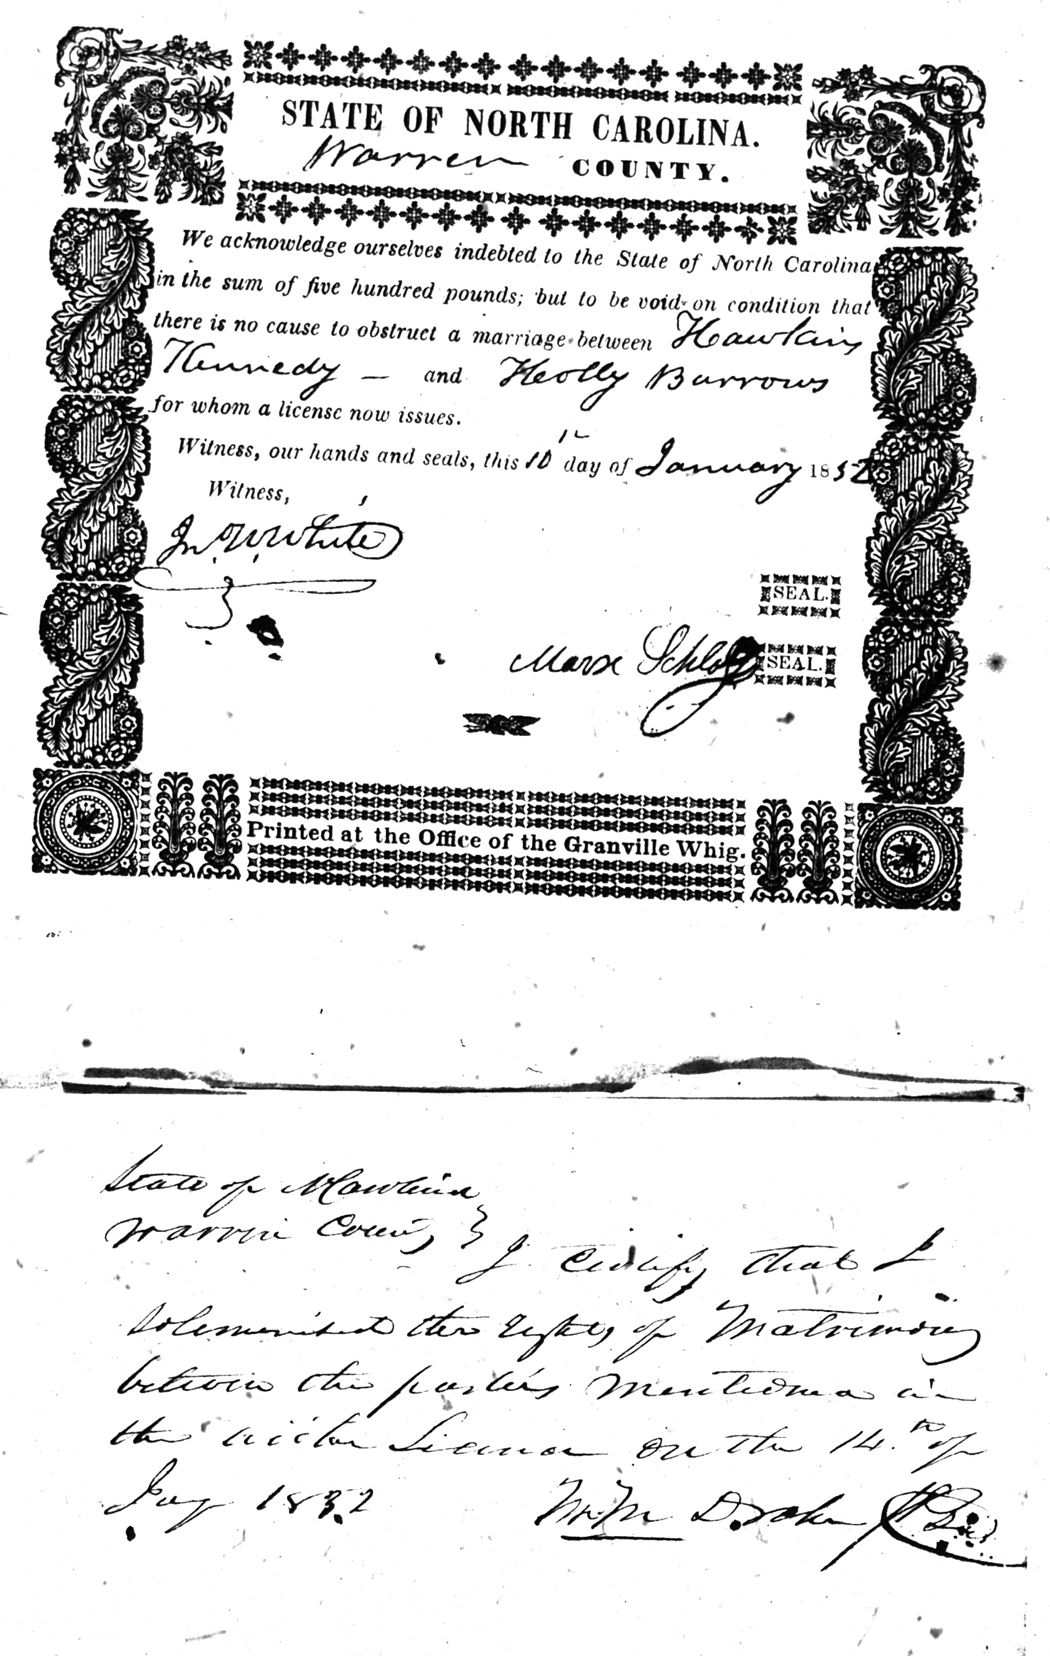 STATE OF NORTH CAROLINA.
Warren COUNTY.
We acknowledge ourselves indebted to the State of North Carolina
in the sum of five hundred pounds; but to be void on condition that
there is no cause to obstruct a marriage between Hawkins
Kennedy — and Holly Burrows
for whom a license now issues.
Witness, our hands and seals, this 10th day of January 1852
Witness,
Jno W White
SEAL.
Marx Schloss SEAL.
Printed at the Office of the Granville Whig.
State of N Carolina
Warren County } I certify that I
solemnised the rights of Matrimony
between the parties mentioned in
the within License on the 14.th of
Jay 1852 Wm M Drake